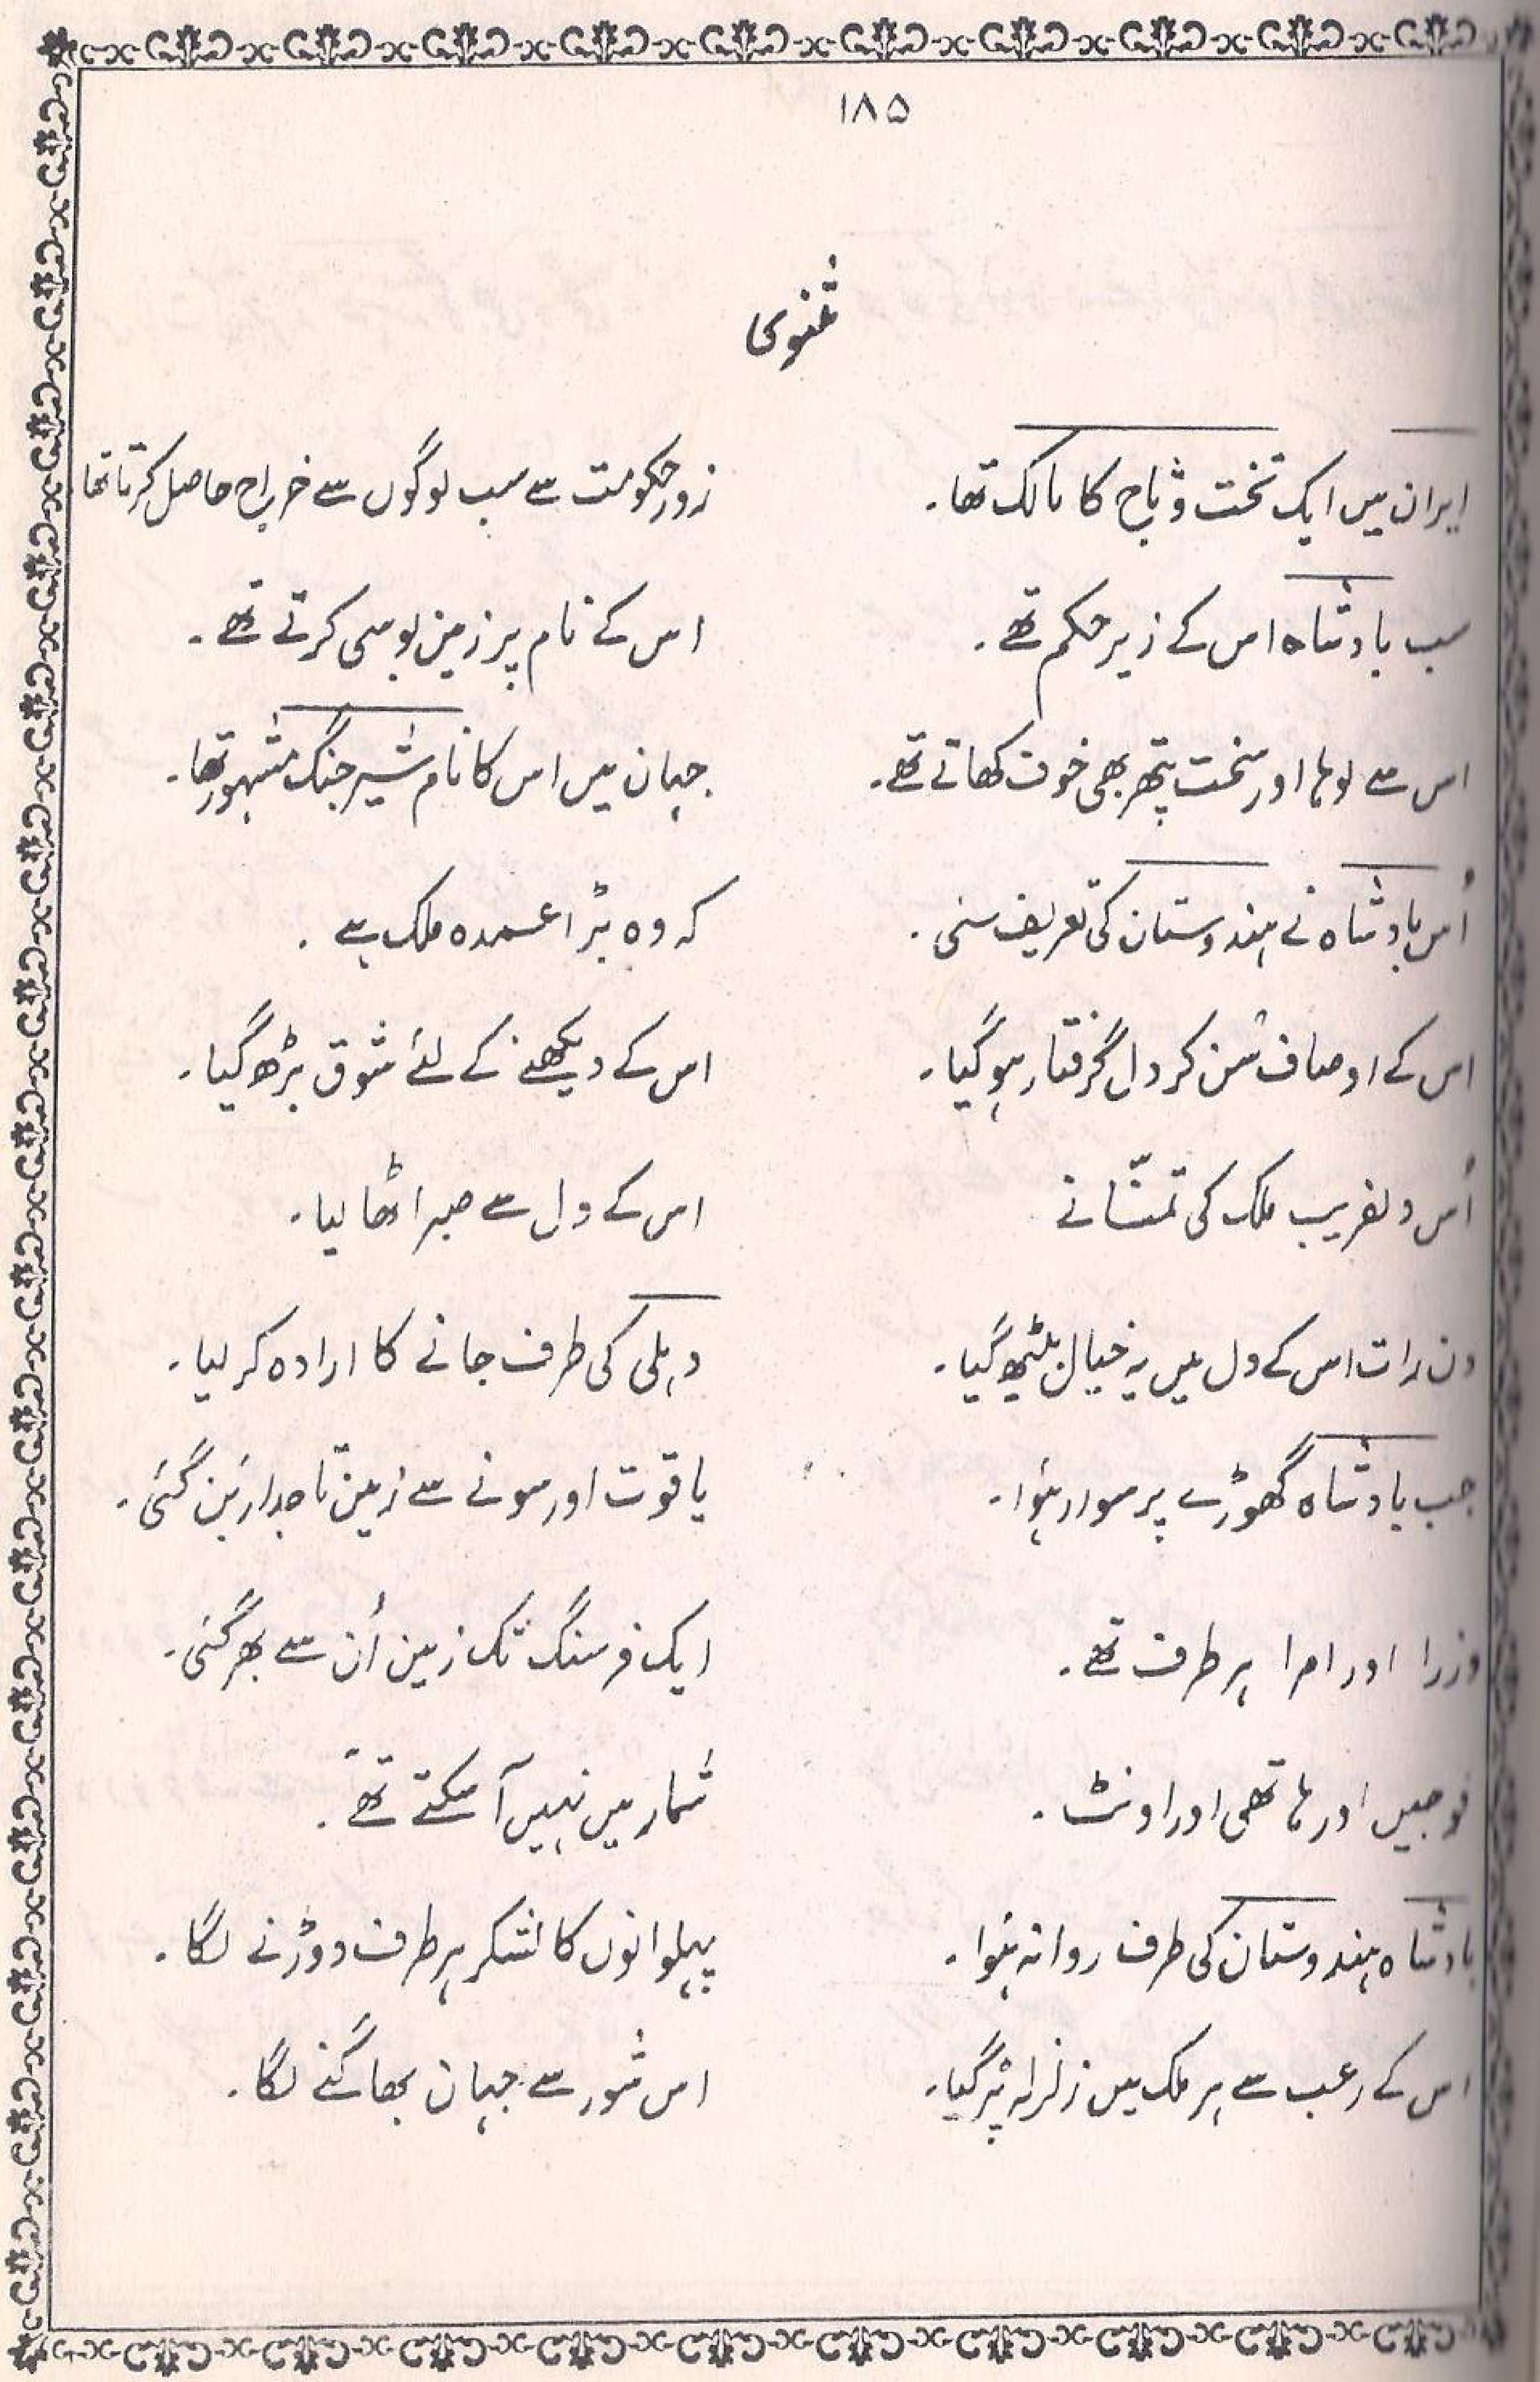 ۱۸۵
مثنوی
ایران میں ایک تخت و تاج کا مالک تھا۔ زور حکومت سے سب لوگوں سے خراج حاصل کرتا تھا
سب بادشاہ اس کے زیر حکم تھے۔ اس کے نام پر زمین بوسی کرتے تھے۔
اس سے لوہا اور سخت پتھر بھی خوف کھاتے تھے۔ جہان میں اس کا نام شیر جنگ مشہور تھا۔
اُس بادشاہ نے ہندوستان کی تعریف سنی۔ کہ وہ بڑا عمدہ ملک ہے۔
اس کے اوصاف سُن کر دل گرفتار ہو گیا۔ اس کے دیکھنے کے لئے شوق بڑھ گیا۔
اُس دلفریب ملک کی تمنّا نے اس کے دل سے صبر اٹھا لیا۔
دن رات اس کے دل میں یہ خیال بیٹھ گیا۔ دہلی کی طرف جانے کا ارادہ کر لیا۔
جب بادشاہ گھوڑے پر سوار ہُوا۔ یاقوت اور سونے سے زمین تاجدار بَن گئی۔
وزرا اور امرا ہر طرف تھے۔ ایک فرسنگ تک زمین اُن سے بھر گئی۔
فوجیں اور ہاتھی اور اونٹ۔ شمار میں نہیں آ سکتے تھے۔
بادشاہ ہندوستان کی طرف روانہ ہُوا۔ پہلوانوں کا لشکر ہر طرف دوڑنے لگا۔
اس کے رعب سے ہر ملک میں زلزلہ پڑ گیا۔ اس شور سے جہان بھاگنے لگا۔